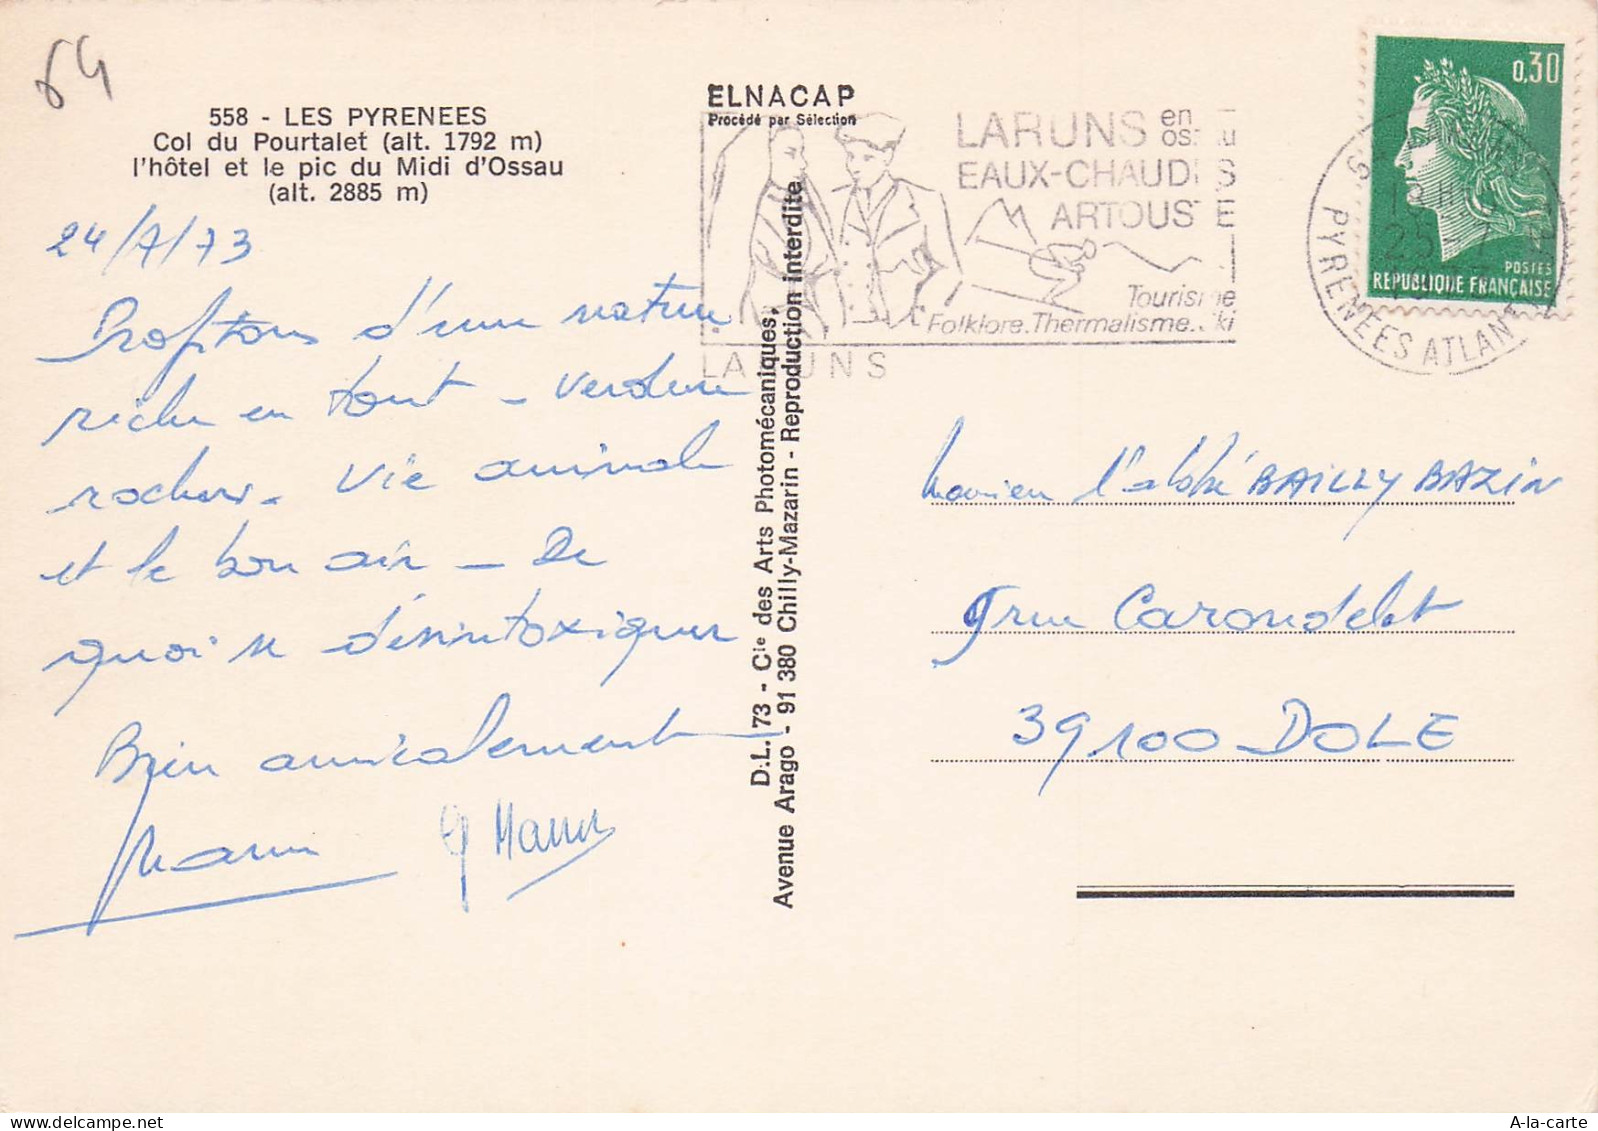 64
558 - LES PYRENEES
Col du Pourtalet (alt. 1792 m)
l'hôtel et le pic du Midi d'Ossau
(alt. 2885 m)
24/7/73
Profitons d'une nature
riche en tout - verdure
rochers - vie animale
et le bon air - De
quoi se désintoxiquer
Bien amicalement
ELNACAP
Procédé par Sélection
D.L. 73 - Cie des Arts Photomécaniques,
Avenue Arago - 91 380 Chilly-Mazarin - Reproduction interdite
LARUNS en
EAUX-CHAUDES
ARTOUSTE
Tourisme
Folklore.Thermalisme.Ski
LARUNS
PYRENEES ATLANT
25
0,30
POSTES
REPUBLIQUE FRANÇAISE
Monsieur l'abbé BAILLY BAZIN
9 rue Carondelet
39100 DOLE
A-la-carte